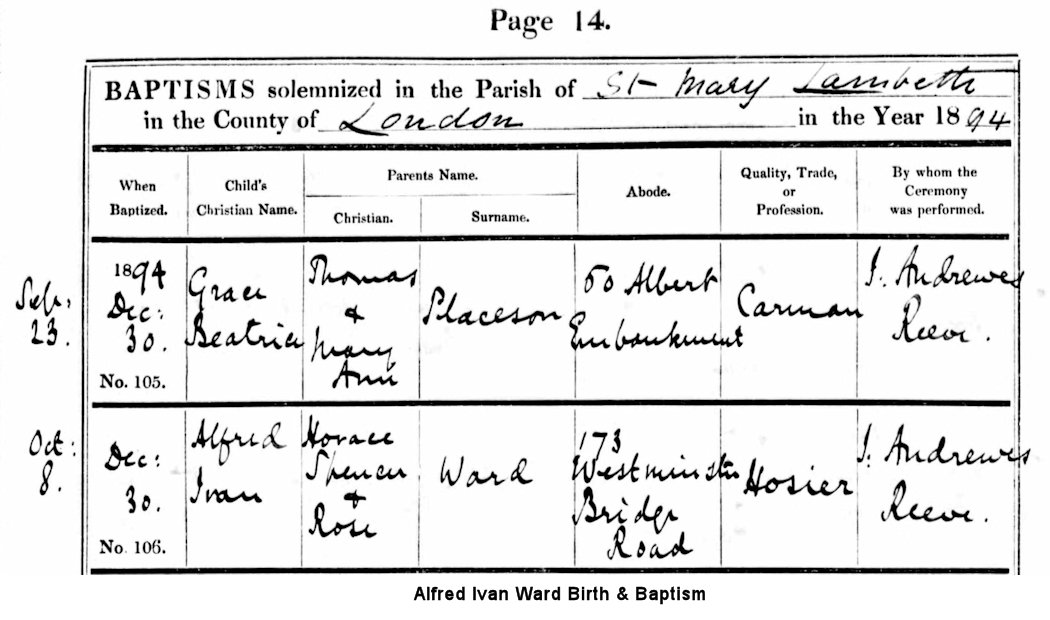 Page 14.
BAPTISMS solemnized in the Parish of St Mary Lambeth
in the County of London in the Year 1894
When Baptized.
Child's Christian Name.
Parents Name.
Christian.
Surname.
Abode.
Quality, Trade, or Profession.
By whom the Ceremony was performed.
Sep: 23.
1894 Dec: 30.
No. 105.
Grace Beatrice
Thomas & Mary Ann
Placeson
50 Albert Embankment
Carman
J. Andrewes Reeve.
Oct: 8.
Dec: 30.
No. 106.
Alfred Ivan
Horace Spencer & Rose
Ward
173 Westminster Bridge Road
Hosier
J. Andrewes Reeve.
Alfred Ivan Ward Birth & Baptism